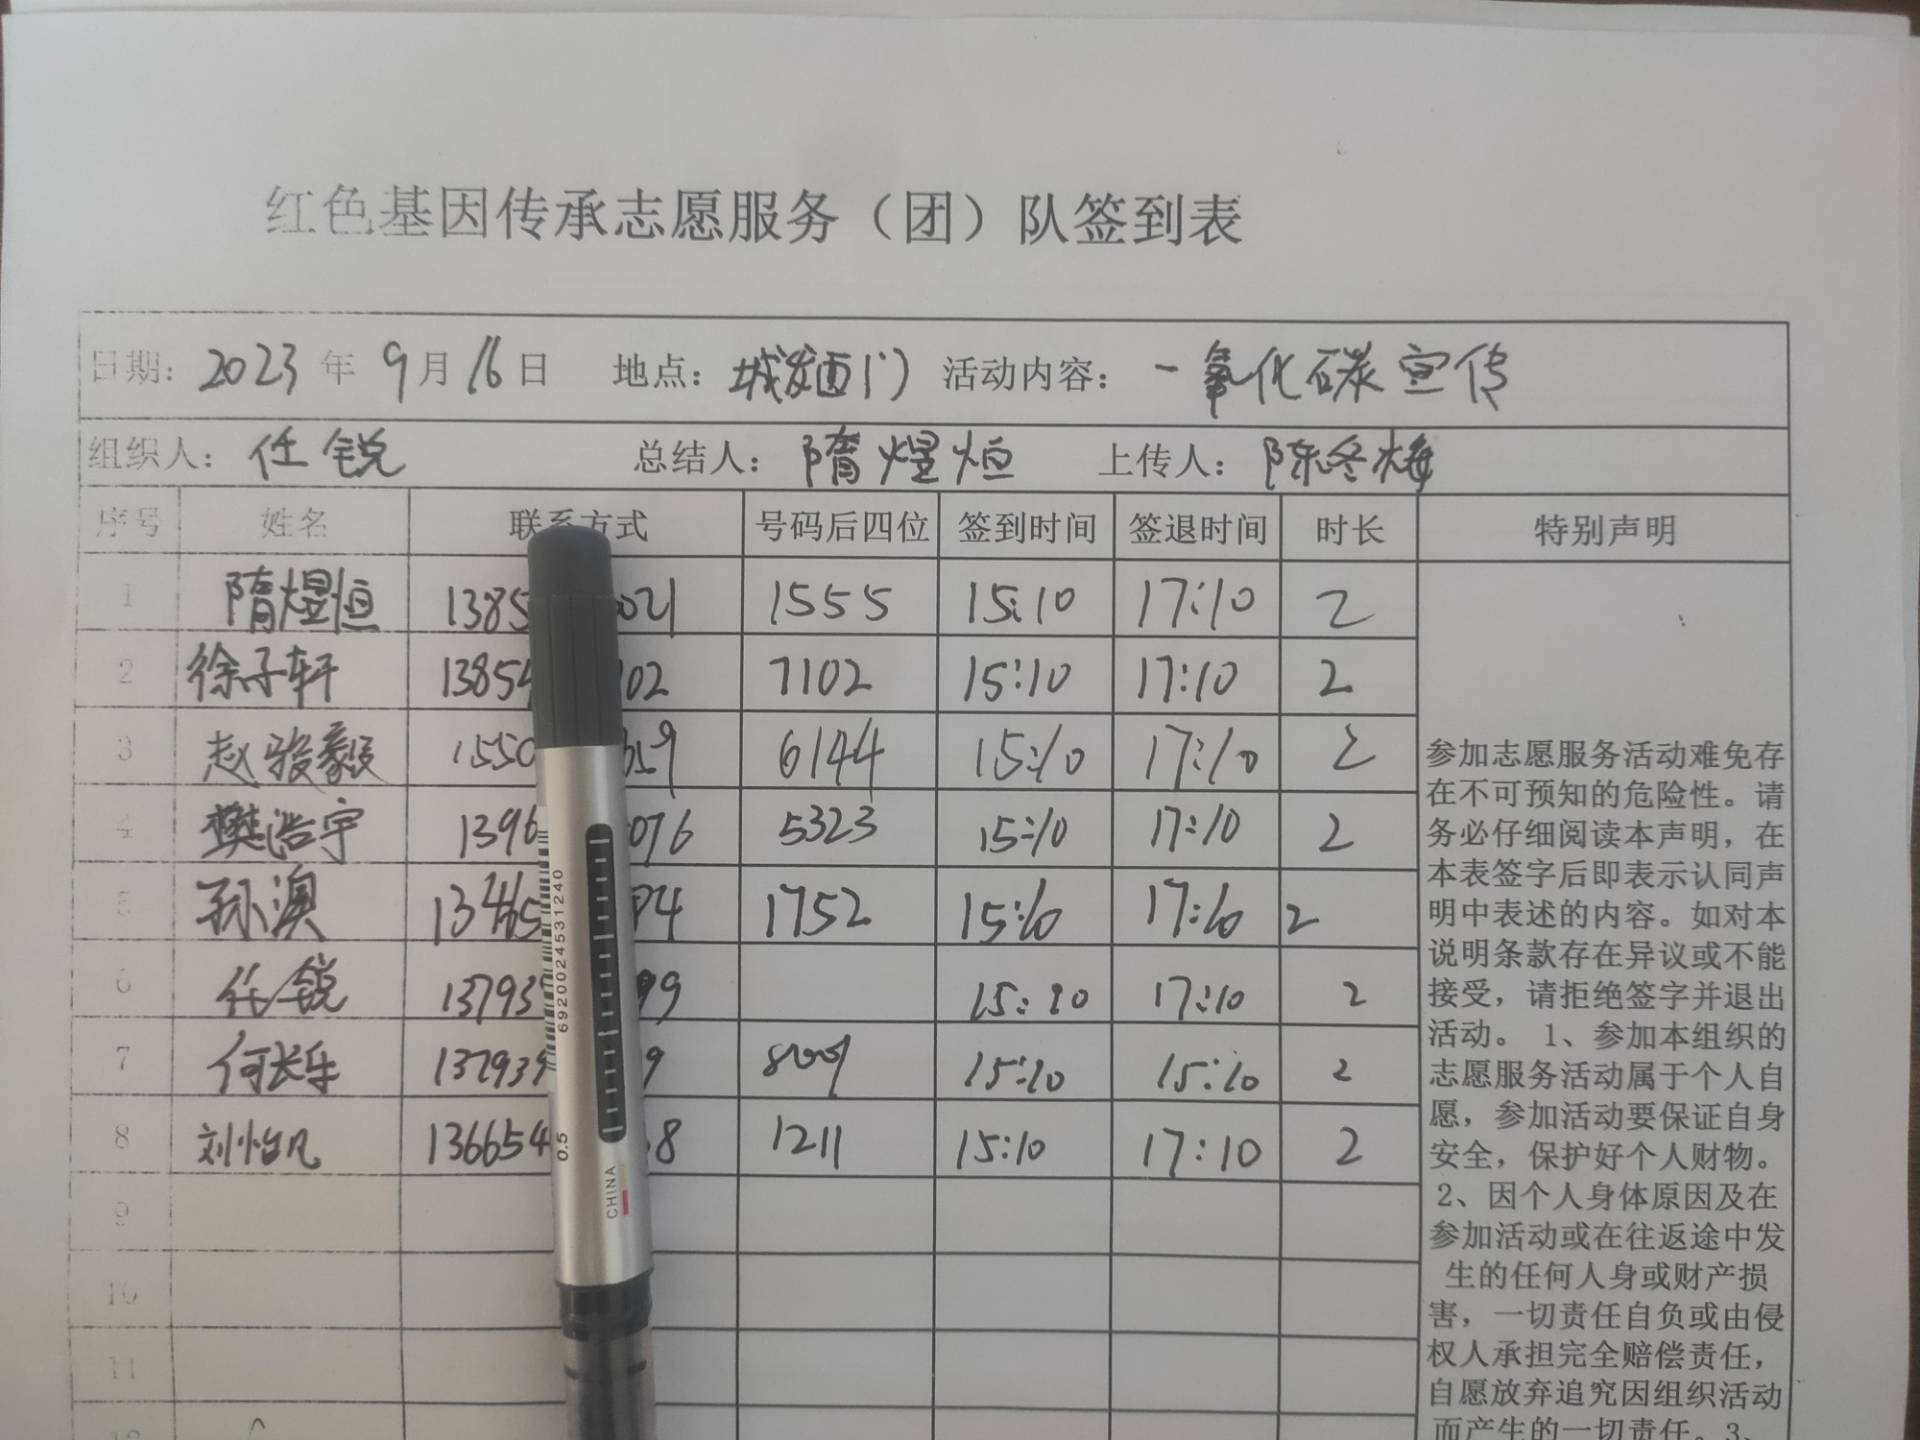 红色基因传承志愿服务（团）队签到表
日期：2023年 9月16日 地点：城发西门 活动内容：一氧化碳宣传
组织人：任锐 总结人：隋煜恒 上传人：陈冬梅
序号 姓名 联系方式 号码后四位 签到时间 签退时间 时长 特别声明
1 隋煜恒 1385 021 1555 15:10 17:10 2
2 徐子轩 13854 02 7102 15:10 17:10 2
3 赵骏毅 1550 359 6144 15:10 17:10 2
4 樊浩宇 1396 076 5323 15:10 17:10 2
5 孙澳 13465 4 1752 15:10 17:10 2
6 任锐 13793 99 15:10 17:10 2
7 何长乐 137939 9 8009 15:10 15:10 2
8 刘怡凡 136654 68 1211 15:10 17:10 2
9
10
11
12
参加志愿服务活动难免存
在不可预知的危险性。请
务必仔细阅读本声明，在
本表签字后即表示认同声
明中表述的内容。如对本
说明条款存在异议或不能
接受，请拒绝签字并退出
活动。 1、参加本组织的
志愿服务活动属于个人自
愿，参加活动要保证自身
安全，保护好个人财物。
2、因个人身体原因及在
参加活动或在往返途中发
生的任何人身或财产损
害，一切责任自负或由侵
权人承担完全赔偿责任，
自愿放弃追究因组织活动
而产生的一切责任。3、
6920024531240
0.5
CHINA